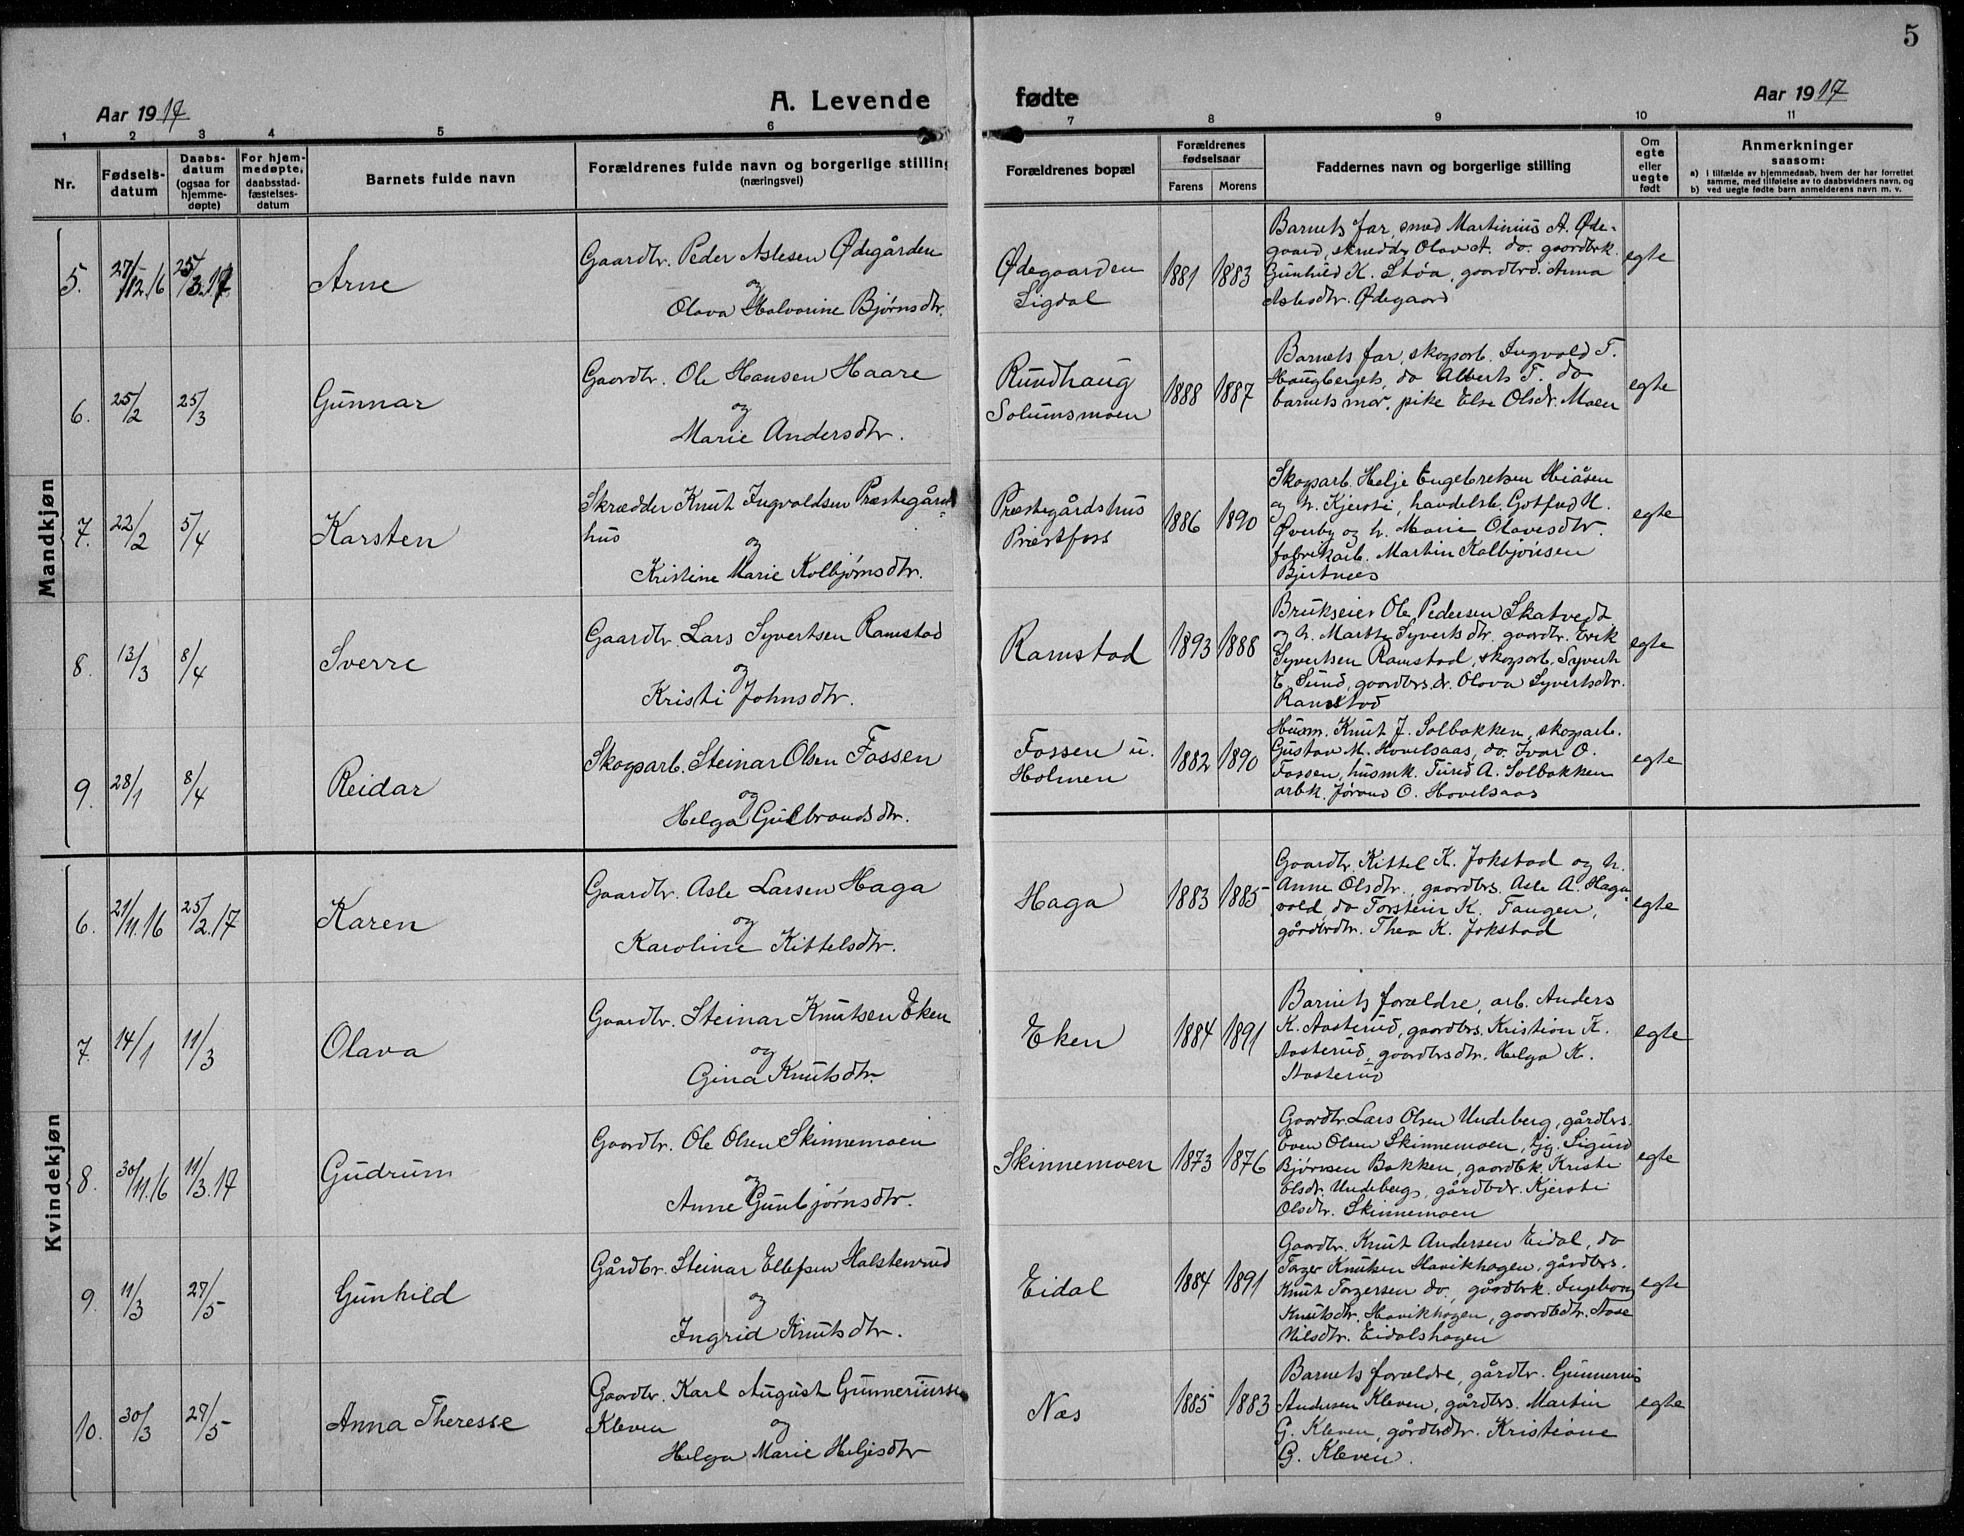 5
Aar 1917
A. Levende fødte
Aar 1917
1 2 3 4 5 6 7 8 9 10 11
Nr.
Fødsels-
datum
Daabs-
datum
(ogsaa for
hjemme-
døpte)
For hjem-
medøpte,
daabsstad-
fæstelses-
datum
Barnets fulde navn
Forældrenes fulde navn og borgerlige stilling
(næringsvei)
Forældrenes bopæl
Forældrenes
fødselsaar
Farens Morens
Faddernes navn og borgerlige stilling
Om
egte
eller
uegte
født
Anmerkninger
saasom:
a) i tilfælde av hjemmedaab, hvem der har forrettet
samme, med tilføielse av to daabsvidners navn, og
b) ved uegte fødte barn anmelderens navn m. v.
Mandkjøn
5. 27/12.16 25/3.17 Arne
Gaardbr. Peder Aslesen Ødegården
og
Olava Halvorine Bjørnsdtr.
Ødegaarden
Sigdal
1881 1883
Barnets far, smed Martinius A. Øde-
gaard, skrædder Olav A. do. gaardbrk.
Gunhild K. Støa, gaardbrd. Anna
Aslesdtr. Ødegaard
egte
6. 25/2 25/3 Gunnar
Gaardbr. Ole Hansen Haare
og
Marie Andersdtr.
Rundhaug
Solumsmoen
1888 1887
Barnets far, skogsarb. Ingvald T.
Haugberget, do Albert T. do
barnets mor, pike Else Olsdr. Moen
egte
7. 22/2 5/4 Karsten
Skrædder Knut Ingvaldsen Præstegårds-
hus
og
Kristine Marie Kolbjørnsdtr.
Præstegårdshus
Præstfoss
1886 1890
Skogsarb. Helje Engebretsen Hiåsen
og h. Kjersti, handelsb. Gotfred H.
Øverby og h. Marie Olavesdtr.
fabrikarb. Martin Kolbjønsen
Bjertnæs
egte
8. 13/3 8/4 Sverre
Gaardbr. Lars Syvertsen Ramstad
og
Kristi Johnsdtr.
Ramstad
1893 1888
Brukseier Ole Pedersen Skatvedt
og h. Marthe Syvertsdtr. gaardbr. Erik
Syvertsen Ramstad, skogsarb. Syvert
E. Sund, gaardbrs.dr. Olava Syvertsdtr.
Ramstad
egte
9. 28/1 8/4 Reidar
Skogsarb. Steinar Olsen Fossen
og
Helga Gulbrandsdtr.
Fossen u.
Holmen
1882 1890
Husm. Knut J. Solbakken, skogsarb.
Gustav M. Hovelsaas, do. Ivar O.
Fossen, husmk. Turid A. Solbakken
arbk. Jørand O. Hovelsaas
egte
Kvindekjøn
6. 21/11.16 25/2.17 Karen
Gaardbr. Asle Larsen Haga
og
Karoline Kittelsdtr.
Haga
1883 1885
Gaardbr. Kittel K. Jokstad og h.
Anne Olsdtr., gaardbrs. Asle A. Haga-
vold, do Torstein K. Tangen,
gårdbrdtr. Thea K. Jokstad
egte
7. 14/1 11/3 Olava
Gaardbr. Steinar Knutsen Eken
og
Gina Knutsdtr.
Eken
1884 1891
Barnets forældre, arb. Anders
K. Aasterud, gaardbrs. Kristian K.
Aasterud, gaardbrsdtr. Helga K.
Aasterud
egte
8. 30/11.16 11/3.17 Gudrum
Gaardbr. Ole Olsen Skinnemoen
og
Anne Gunbjørnsdtr.
Skinnemoen
1873 1876
Gaardbr. Lars Olsen Undeberg, gårdbrs.
Even Olsen Skinnemoen, ljg. Sigurd
Bjørnsen Bakken, gaardbk. Kristi
Elsdr. Undebergs, gårdbdr. Kjersti
Olsdtr. Skinnemoen
egte
9. 11/3 27/5 Gunhild
Gårdbr. Steinar Ellefsen Halstenrud
og
Ingrid Knutsdtr.
Eidal
1884 1891
Gaardbr. Knut Andersen Eidal, do
Torger Knutsen Havikhagen, gårdbrs.
Knut Torgersen do, gårdbrk. Ingeborg
Knutsdtr. Havikhagen, gaardbdtr. Aase
Nilsdtr. Eidalshagen
egte
10. 30/3 27/5 Anna Theresse
Gaardbr. Karl August Gunneriussen
Kleven
og
Helga Marie Heljesdtr
Næs
1885 1883
Barnets forældre, gårdbr. Gunnerius
Andersen Kleven, gårdbrs. Martin
G. Kleven, gårdbrdtr. Kristiane
G. Kleven.
egte